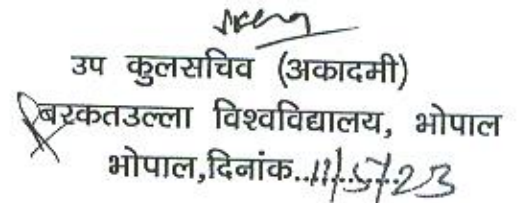 उप कुलसचिव (अकादमी)
बरकतउल्ला विश्वविद्यालय, भोपाल
भोपाल,दिनांक..11/5/23